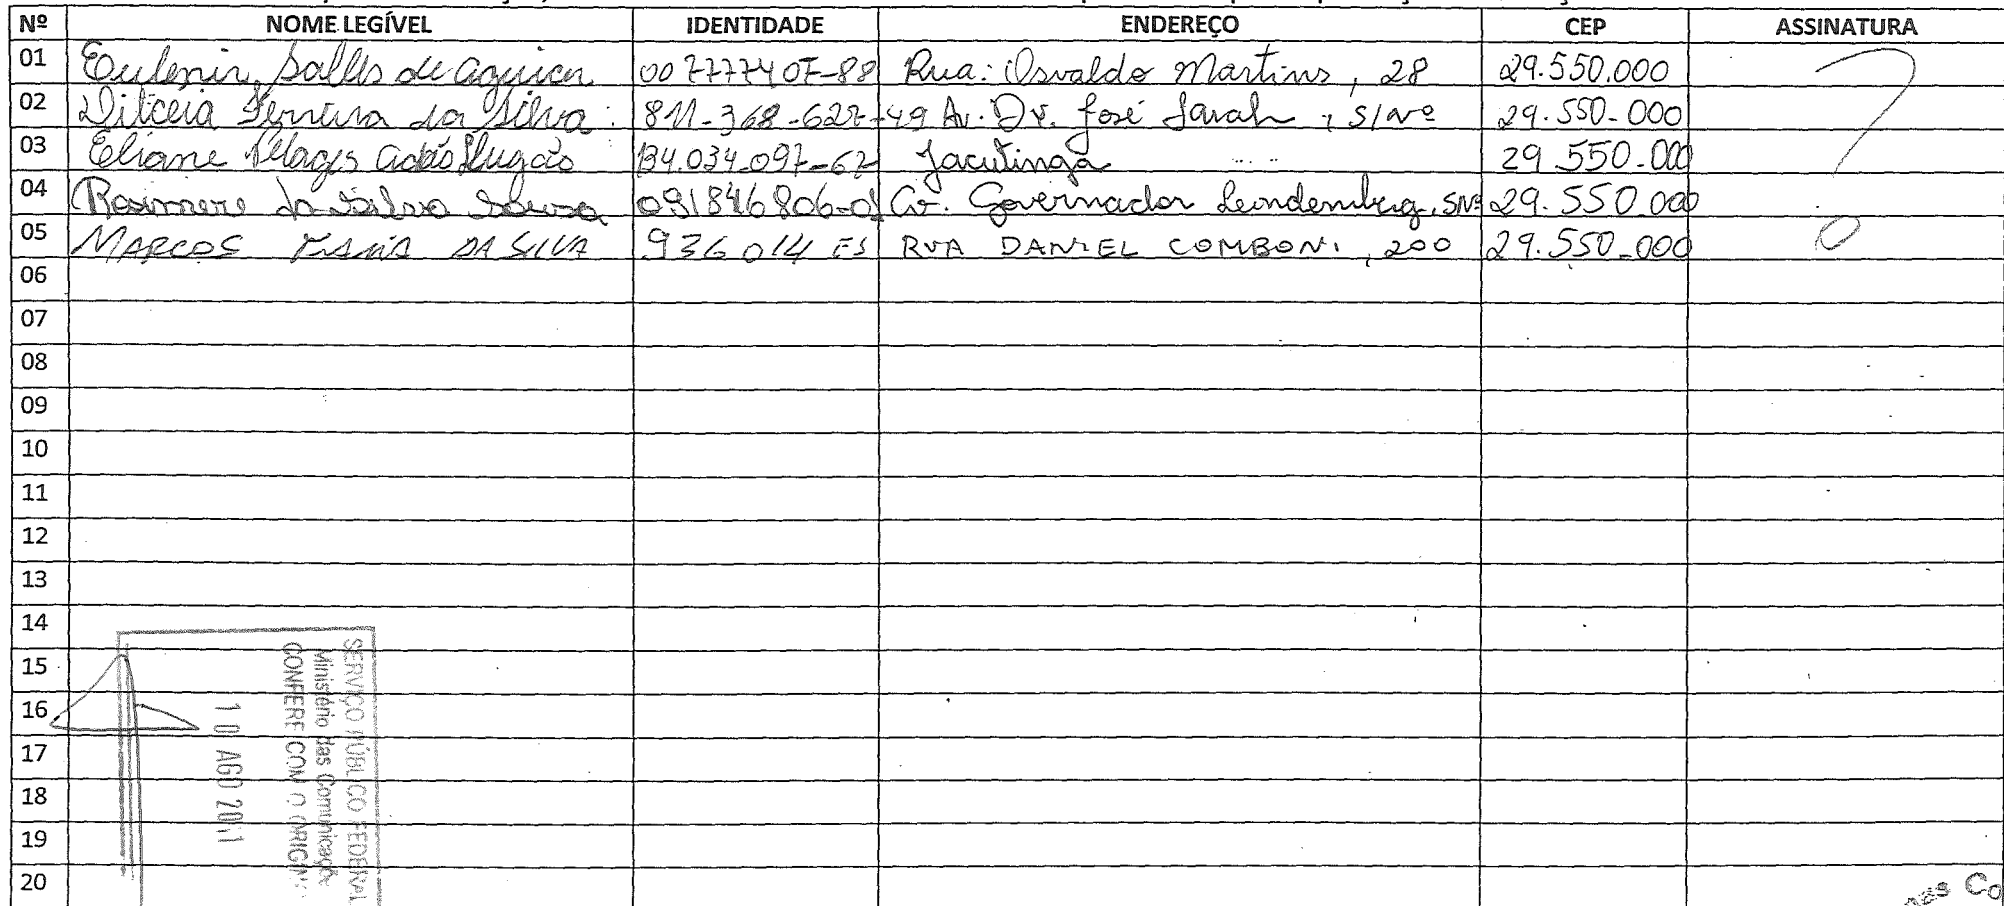 Nº NOME LEGÍVEL IDENTIDADE ENDEREÇO CEP ASSINATURA
01 Eulenir Salles de Aguiar 0077774 07-88 Rua: Osvaldo Martins, 28 29.550.000 ?
02 Dilceia Ferreira da Silva 811-368-627-49 Av. Dr. José Farah, S/Nº 29.550-000
03 Eliane 134.034.097-62 Jacutinga 29.550-000
04 Rosimere da Silva Souza 091846806-01 Av. Governador Leondemberg, SNº 29.550.000
05 MARCOS DA SILVA 936014 ES RUA DANIEL COMBONI, 200 29.550-000
06
07
08
09
10
11
12
13
14
15
16
17
18
19
20
SERVIÇO PÚBLICO FEDERAL
Ministério das Comunicaçõ
CONFERE COM O ORIGIN
10 AGO 2011
Co